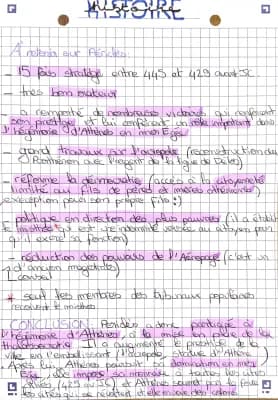 HISTOIRE
A retenir sur Périclès.
- 15 fois stratège entre 445 et 429 avant JC.
- très bon orateur
- a remporté de nombreuses victoires qui renforcent
son prestige et lui confèrent un rôle important dans
l'hégémonie d'Athènes en mer Egée.
- grand travaux sur l'acropole (reconstruction du
Parthénon avec l'argent de la ligue de Délos)
- réforme la démocratie (accès à la citoyenneté
limité au fils de pères et mères athéniens)
exception pour son propre fils :)
- politique en direction des plus pauvres (il a établi
le misthos qui est une indemnité versée au citoyen pour
qu'il exerce sa fonction)
- réduction des pouvoirs de l'Aréopage (c'est un
conseil d'anciens magistrats)
* seul les membres des tribunaux populaires
reçoivent le misthos
CONCLUSION: Périclès a donc participé à
l'hégémonie d'Athènes, à la mise en place de la
Il augmente le prestige de la
ville en l'embellissant (l'acropole, statue d'Athéna)
Après lui Athènes poursuit sa domination en mer
Egée, elle impose sa monnaie, à toutes les cités
alliées (425 av JC) et Athènes
cités qui se révoltent